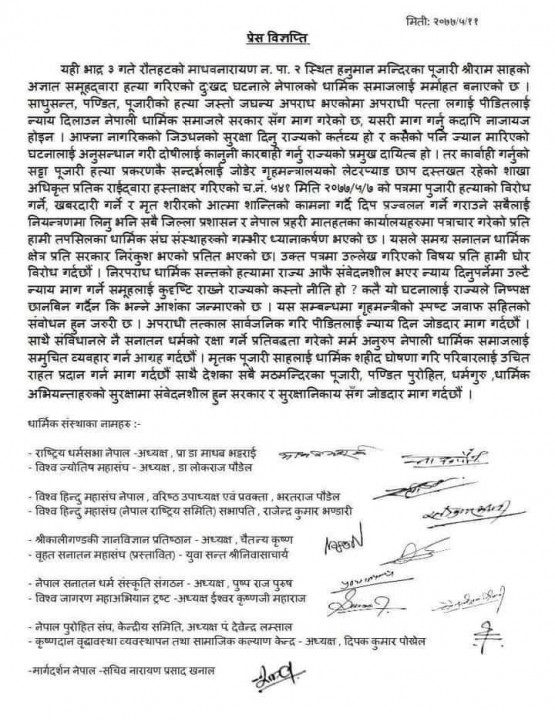 मिती: २०७७/५/११
प्रेस विज्ञप्ति
यही भाद्र ३ गते रौतहटको माधवनारायण न. पा. २ स्थित हनुमान मन्दिरका पूजारी श्रीराम साहको
अज्ञात समूहद्वारा हत्या गरिएको दुःखद घटनाले नेपालको धार्मिक समाजलाई मर्माहत बनाएको छ ।
साधुसन्त, पण्डित, पूजारीको हत्या जस्तो जघन्य अपराध भएकोमा अपराधी पत्ता लगाई पीडितलाई
न्याय दिलाउन नेपाली धार्मिक समाजले सरकार सँग माग गरेको छ, यसरी माग गर्नु कदापि नाजायज
होइन । आफ्ना नागरिकको जिउधनको सुरक्षा दिनु राज्यको कर्तव्य हो र कसैको पनि ज्यान मारिएको
घटनालाई अनुसन्धान गरी दोषीलाई कानुनी कारबाही गर्नु राज्यको प्रमुख दायित्व हो । तर कार्वाही गर्नुको
सट्टा पूजारी हत्या प्रकरणकै सन्दर्भलाई जोडेर गृहमन्त्रालयको लेटरप्याड छाप दस्तखत रहेको शाखा
अधिकृत प्रतिक राईद्वारा हस्ताक्षर गरिएको च.नं. ५४१ मिति २०७७/५/७ को पत्रमा पुजारी हत्याको विरोध
गर्ने, खबरदारी गर्ने र मृत शरीरको आत्मा शान्तिको कामना गर्दै दिप प्रज्वलन गर्ने गराउने सबैलाई
नियन्त्रणमा लिनु भनि सबै जिल्ला प्रशासन र नेपाल प्रहरी मातहतका कार्यालयहरुमा पत्राचार गरेको प्रति
हामी तपसिलका धार्मिक संघ संस्थाहरुको गम्भीर ध्यानाकर्षण भएको छ । यसले समग्र सनातन धार्मिक
क्षेत्र प्रति सरकार निरंकुश भएको प्रतित भएको छ। उक्त पत्रमा उल्लेख गरिएको विषय प्रति हामी घोर
विरोध गर्दछौं । निरपराध धार्मिक सन्तको हत्यामा राज्य आफै संवेदनशील भएर न्याय दिनुपर्नेमा उल्टै
न्याय माग गर्ने समूहलाई कुदृष्टि राख्ने राज्यको कस्तो नीति हो ? कतै यो घटनालाई राज्यले निष्पक्ष
छानबिन गर्दैन कि भन्ने आशंका जन्माएको छ । यस सम्बन्धमा गृहमन्त्रीको स्पष्ट जवाफ सहितको
संबोधन हुन जरुरी छ । अपराधी तत्काल सार्वजनिक गरि पीडितलाई न्याय दिन जोडदार माग गर्दछौं ।
साथै संविधानले नै सनातन धर्मको रक्षा गर्ने प्रतिवद्धता गरेको मर्म अनुरुप नेपाली धार्मिक समाजलाई
समुचित व्यवहार गर्न आग्रह गर्दछौं । मृतक पूजारी साहलाई धार्मिक शहीद घोषणा गरि परिवारलाई उचित
राहत प्रदान गर्न माग गर्दछौं साथै देशका सबै मठमन्दिरका पूजारी, पण्डित पुरोहित, धर्मगुरु ,धार्मिक
अभियन्ताहरुको सुरक्षामा संवेदनशील हुन सरकार र सुरक्षानिकाय सँग जोडदार माग गर्दछौं ।
धार्मिक संस्थाका नामहरु :-
- राष्ट्रिय धर्मसभा नेपाल -अध्यक्ष , प्रा डा माधब भट्टराई
- विश्व ज्योतिष महासंघ - अध्यक्ष , डा लोकराज पौडेल
- विश्व हिन्दु महासंघ नेपाल , वरिष्ठ उपाध्यक्ष एवं प्रवक्ता , भरतराज पौडेल
- विश्व हिन्दु महासंघ (नेपाल राष्ट्रिय समिति) सभापति , राजेन्द्र कुमार भण्डारी
- श्रीकालीगण्डकी ज्ञानविज्ञान प्रतिष्ठान - अध्यक्ष , चैतन्य कृष्ण
- वृहत सनातन महासंघ (प्रस्तावित) - युवा सन्त श्रीनिवासाचार्य
- नेपाल सनातन धर्म संस्कृति संगठन - अध्यक्ष , पुष्प राज पुरुष
- विश्व जागरण महाअभियान ट्रष्ट -अध्यक्ष ईश्वर कृष्णजी महाराज
- नेपाल पुरोहित संघ, केन्द्रीय समिति, अध्यक्ष पं देवेन्द्र लम्साल
- कृष्णदान वृद्धावस्था व्यवस्थापन तथा सामाजिक कल्याण केन्द्र - अध्यक्ष , दिपक कुमार पोखेल
-मार्गदर्शन नेपाल -सचिव नारायण प्रसाद खनाल